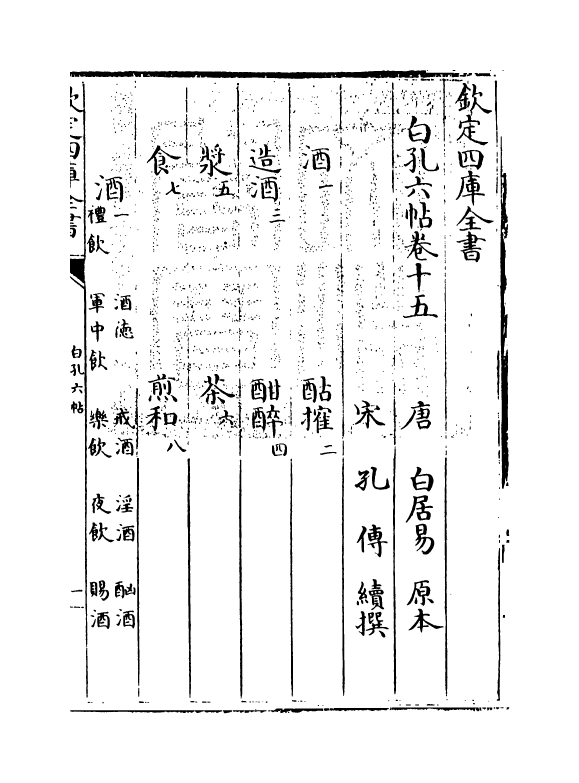 欽定四庫全書
白孔六帖卷十五
唐 白居易 原本
宋 孔傳 續撰
酒一 酤搉二
造酒三 酣醉四
漿五 茶六
食七 煎和八
酒一 酒德 戒酒 淫酒 酗酒
禮飲 軍中飲 樂飲 夜飲 賜酒
欽定四庫全書
白孔六帖
一